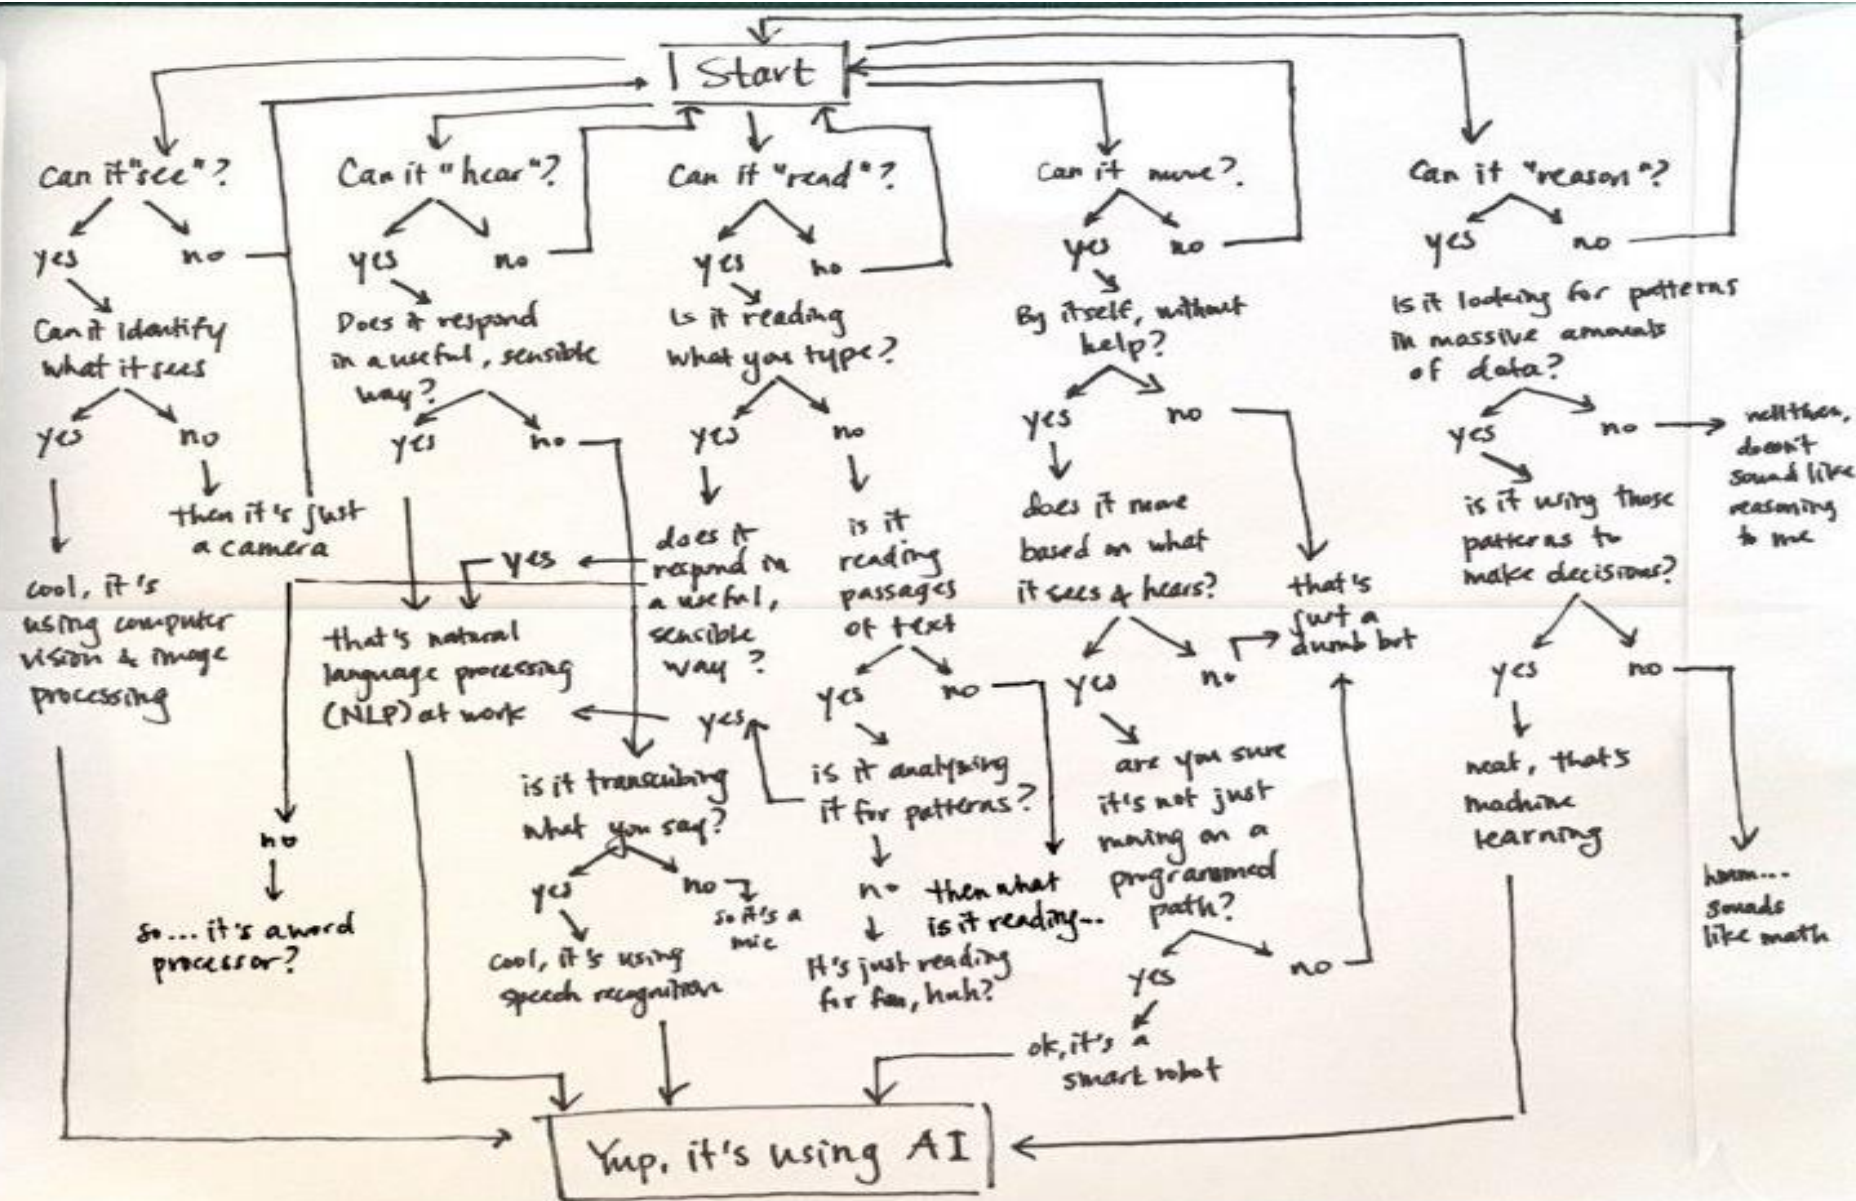 Start
Can it "see"?
yes
no
Can it identify
what it sees
yes
no
then it's just
a camera
cool, it's
using computer
vision & image
processing
Can it "hear"?
yes
no
Does it respond
in a useful, sensible
way?
yes
no
that's natural
language processing
(NLP) at work
is it transcribing
what you say?
yes
no
so it's a
mic
cool, it's using
speech recognition
Can it "read"?
yes
no
Is it reading
what you type?
yes
no
does it
respond in
a useful,
sensible
way?
yes
no
so... it's a word
processor?
is it
reading
passages
of text
yes
no
is it analyzing
it for patterns?
yes
no
It's just reading
for fun, huh?
then what
is it reading...
Can it move?
yes
no
By itself, without
help?
yes
no
does it move
based on what
it sees & hears?
yes
no
that's
just a
dumb bot
are you sure
it's not just
moving on a
programmed
path?
yes
no
ok, it's a
smart robot
Can it "reason"?
yes
no
Is it looking for patterns
in massive amounts
of data?
yes
no
well then,
doesn't
sound like
reasoning
to me
is it using those
patterns to
make decisions?
yes
no
neat, that's
machine
learning
hmm...
sounds
like math
Yup, it's using AI